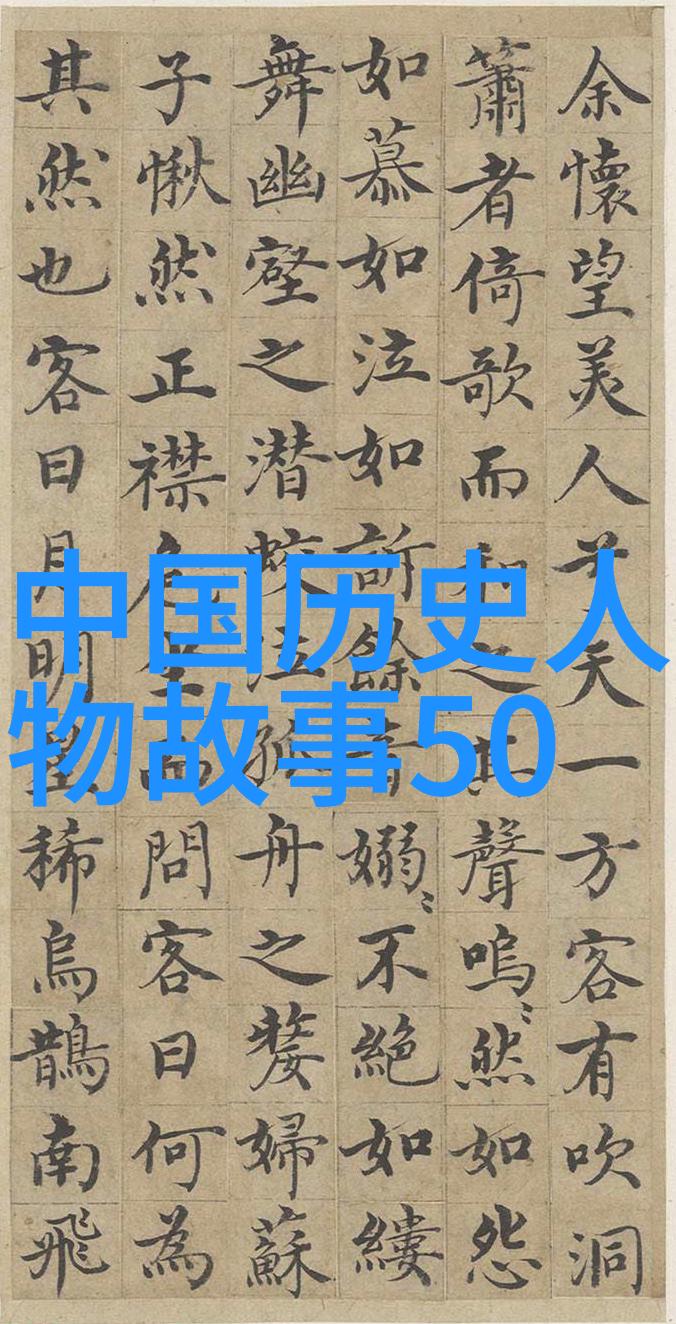 余懷望美人兮天一方客有吹洞
簫者倚歌而和之其聲嗚〻然如怨
如慕如泣如訴餘音嫋〻不絕如縷
舞幽壑之潛蛟泣孤舟之嫠婦蘇
子愀然正襟危坐而問客曰何為
其然也客曰月明星稀烏鵲南飛
中国历史人
物故事50